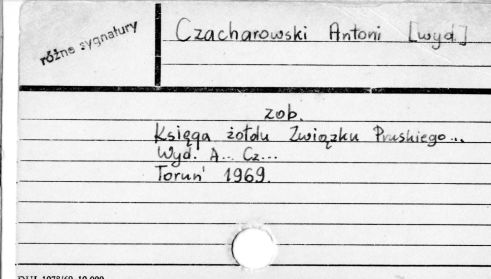 różne sygnatury
Czacharowski Antoni [wyd.]
zob.
Księga żołdu Związku Pruskiego...
Wyd. A... Cz...
Toruń 1969.